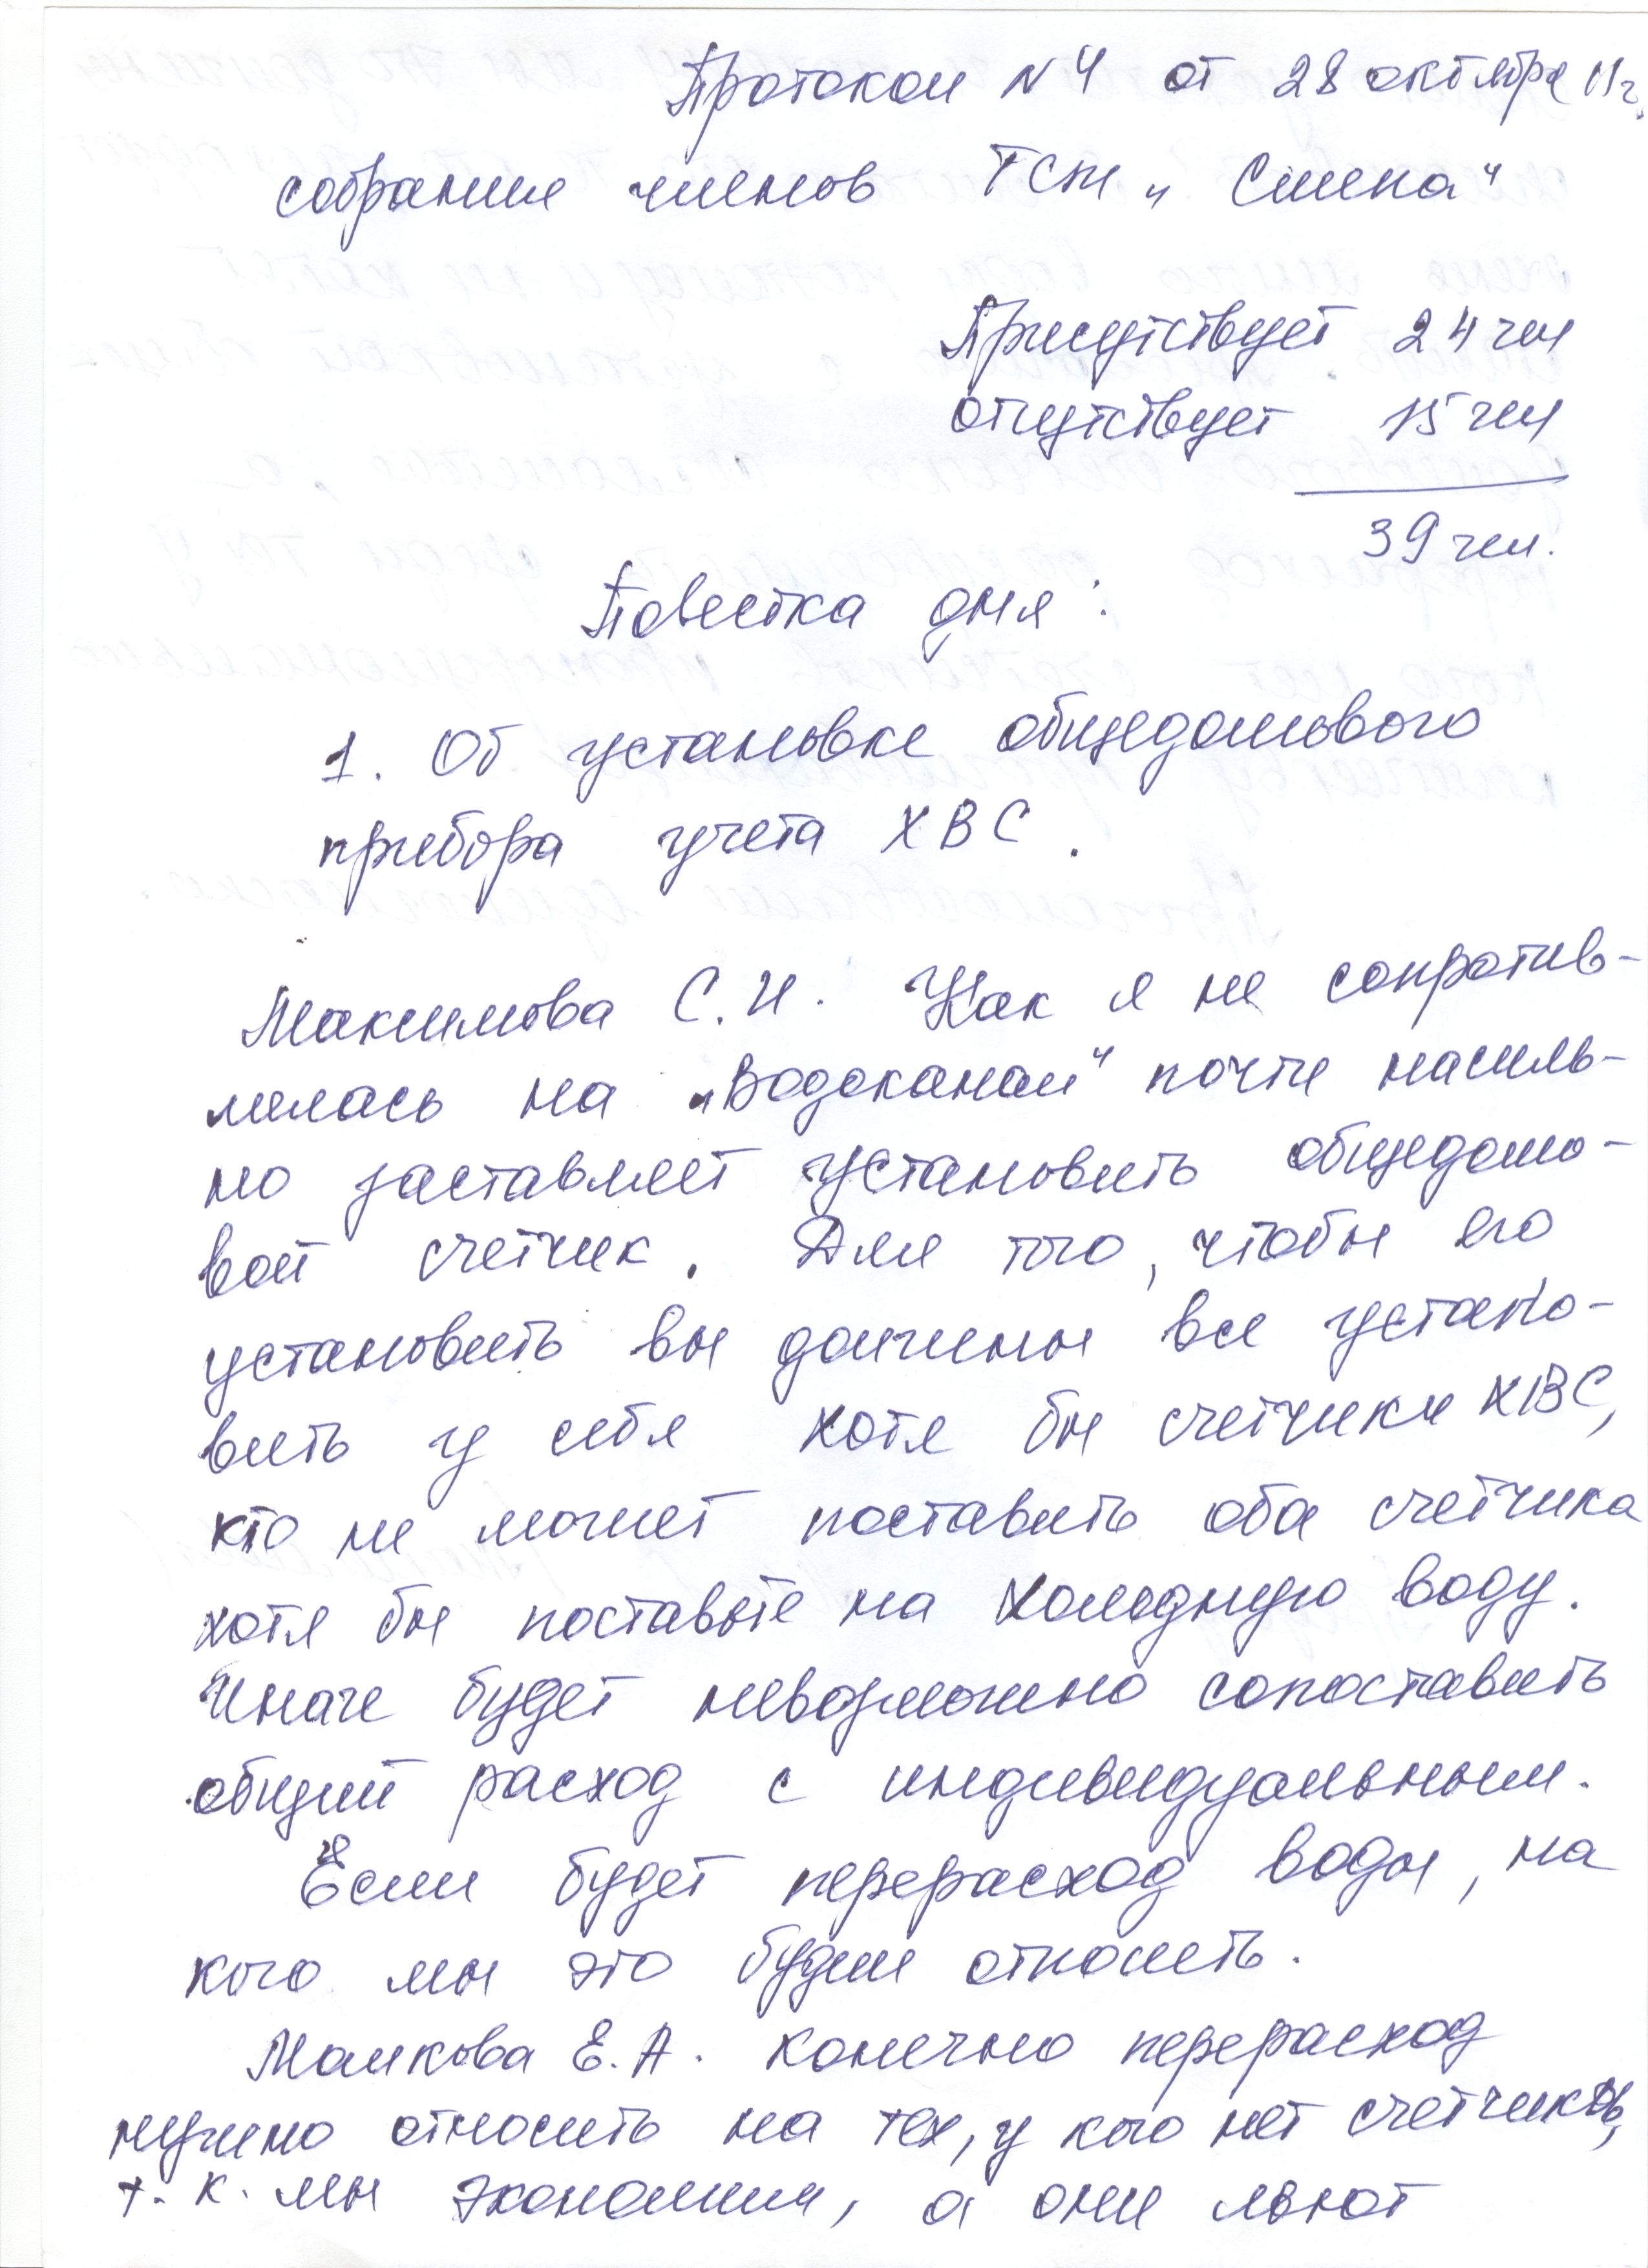 Протокол N 4 от 28 октября 11г.
собрания членов ТСЖ „Смена"
Присутствует 24 чел
отсутствует 15 чел
39 чел.
Повестка дня:
1. Об установке общедомового
прибора учета ХВС.
Максимова С.И. Как я не сопротив-
лялась но „Водоканал" почти насиль-
но заставляет установить общедомо-
вой счетчик. Для того, чтобы его
установить вы должны все устано-
вить у себя хотя бы счетчики ХВС,
кто не может поставить оба счетчика
хотя бы поставьте на холодную воду.
Иначе будет невозможно сопоставить
общий расход с индивидуальным.
Если будет перерасход воды, на
кого мы это будем относить.
Малкова Е.А. Конечно перерасход
нужно относить на тех, у кого нет счетчиков,
т.к. мы экономим, а они льют